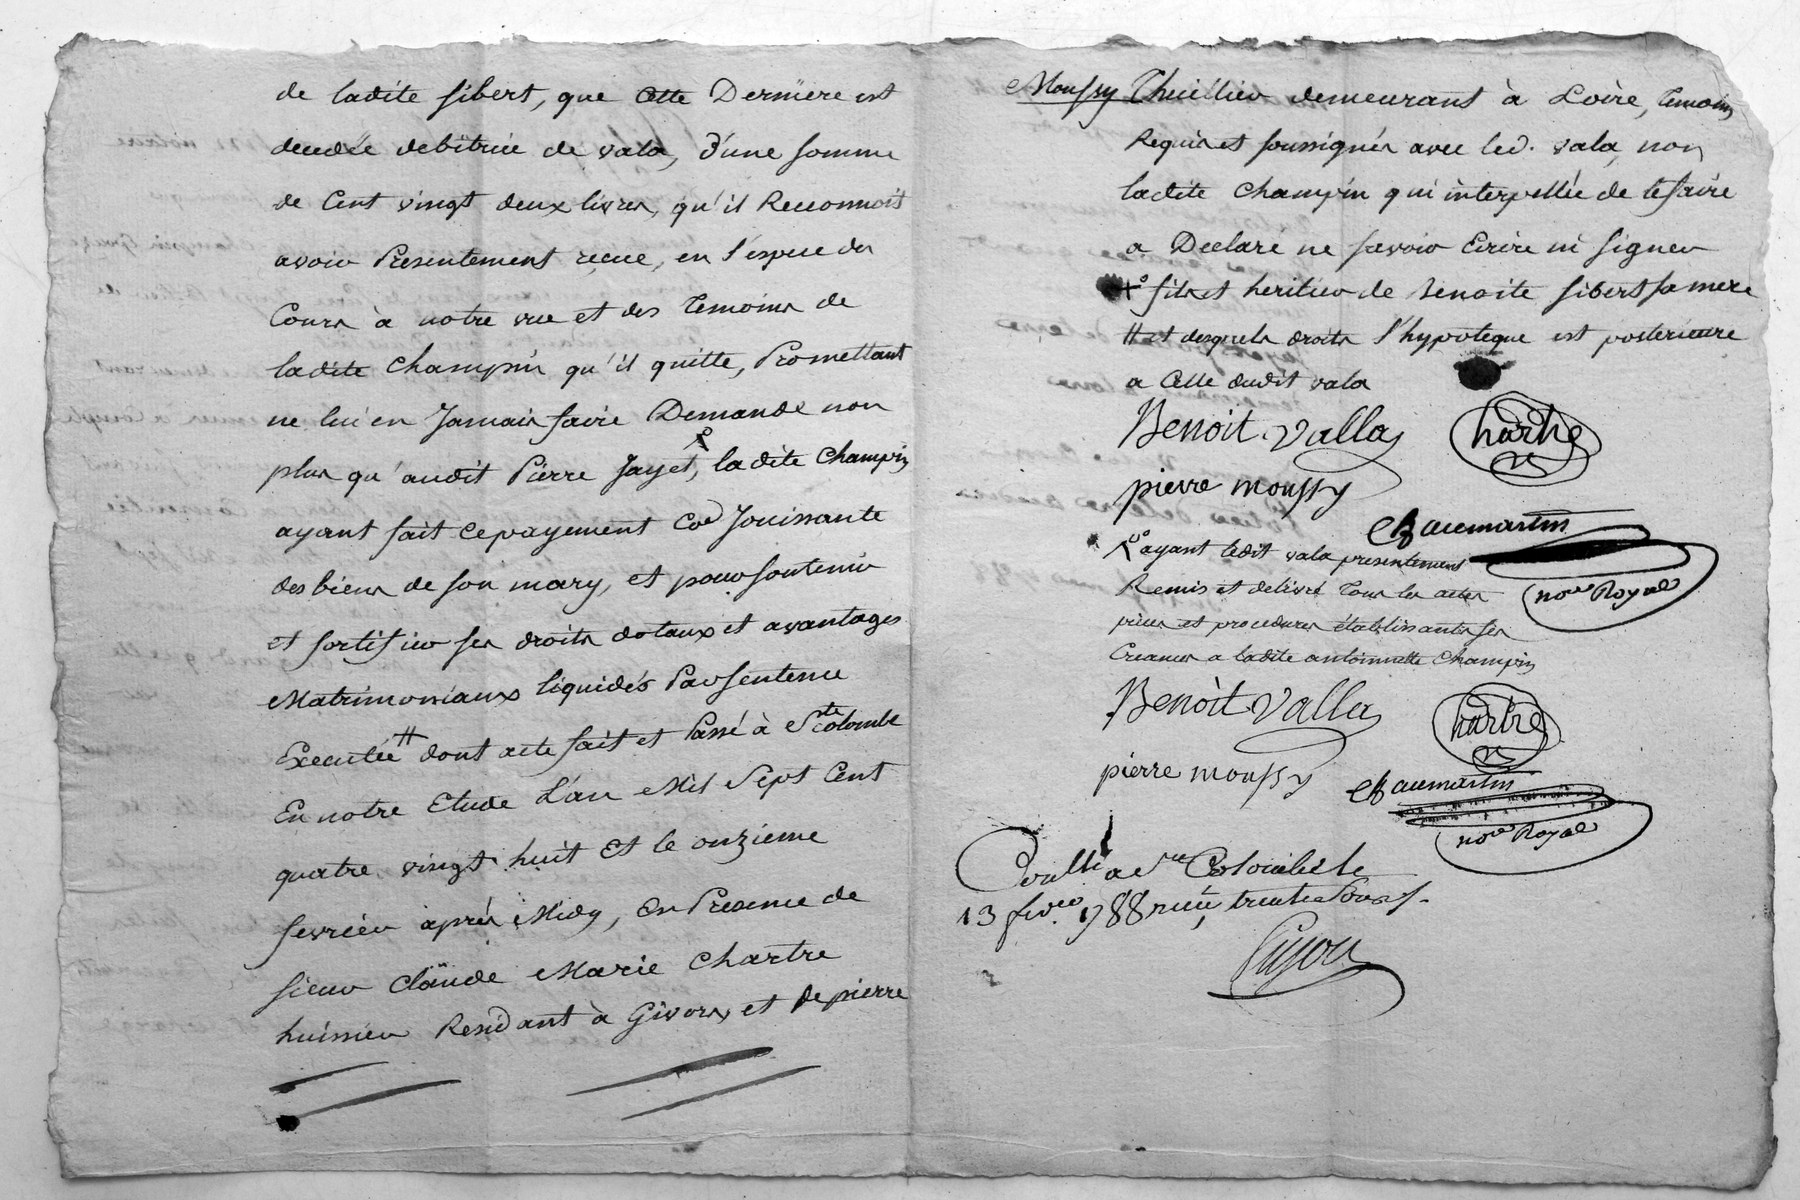 de ladite sibert, que Cette Derniere est
decedée debitrice de vala, D'une somme
de Cent vingt deux livres, qu'il Reconnoit
avoir Presentement reçue, en l'espece du
Cours à notre vue et des Temoins de
ladite Champin qu'il quitte, Promettant
ne lui en Jamais faire Demande non
plus qu'audit Pierre Jayet, ladite Champin
ayant fait ce payement Coe Jouissante
des biens de son mary, et pour soutenir
et fortifier ses droits dotaux et avantages
Matrimoniaux liquidés Par sentence
Executée # dont acte fait et Passé à Ste Colombe
En notre Etude L'an Mil Sept Cent
quatre vingt huit Et le onzieme
fevrier après Midy, En Presence de
sieur Claude Marie Chartre
huissier Residant à Givors, et de pierre
Moussy Thuillier demeurant à Loire, Temoins
Requis et soussignés avec led. vala, non
ladite Champin qui interpellée de le faire
a Declaré ne savoir Ecrire ni signer
+ fils et heritier de Benoite sibert sa mere
# et desquels droits l'hypoteque est posterieure
a Celle dudit vala
Benoit Valla Chartre
pierre moussy
Chaumartin
ayant ledit vala presentement
Remis et delivré Tous les actes
pieces et procedures établissants ses
Creances a ladite antoinette Champin
nore Royal
Benoit Valla Chartre
pierre moussy
Chaumartin
nore Royal
Conllé a Ste Colombe le
13 fevrer 1788 reçu trente sous
Guyon